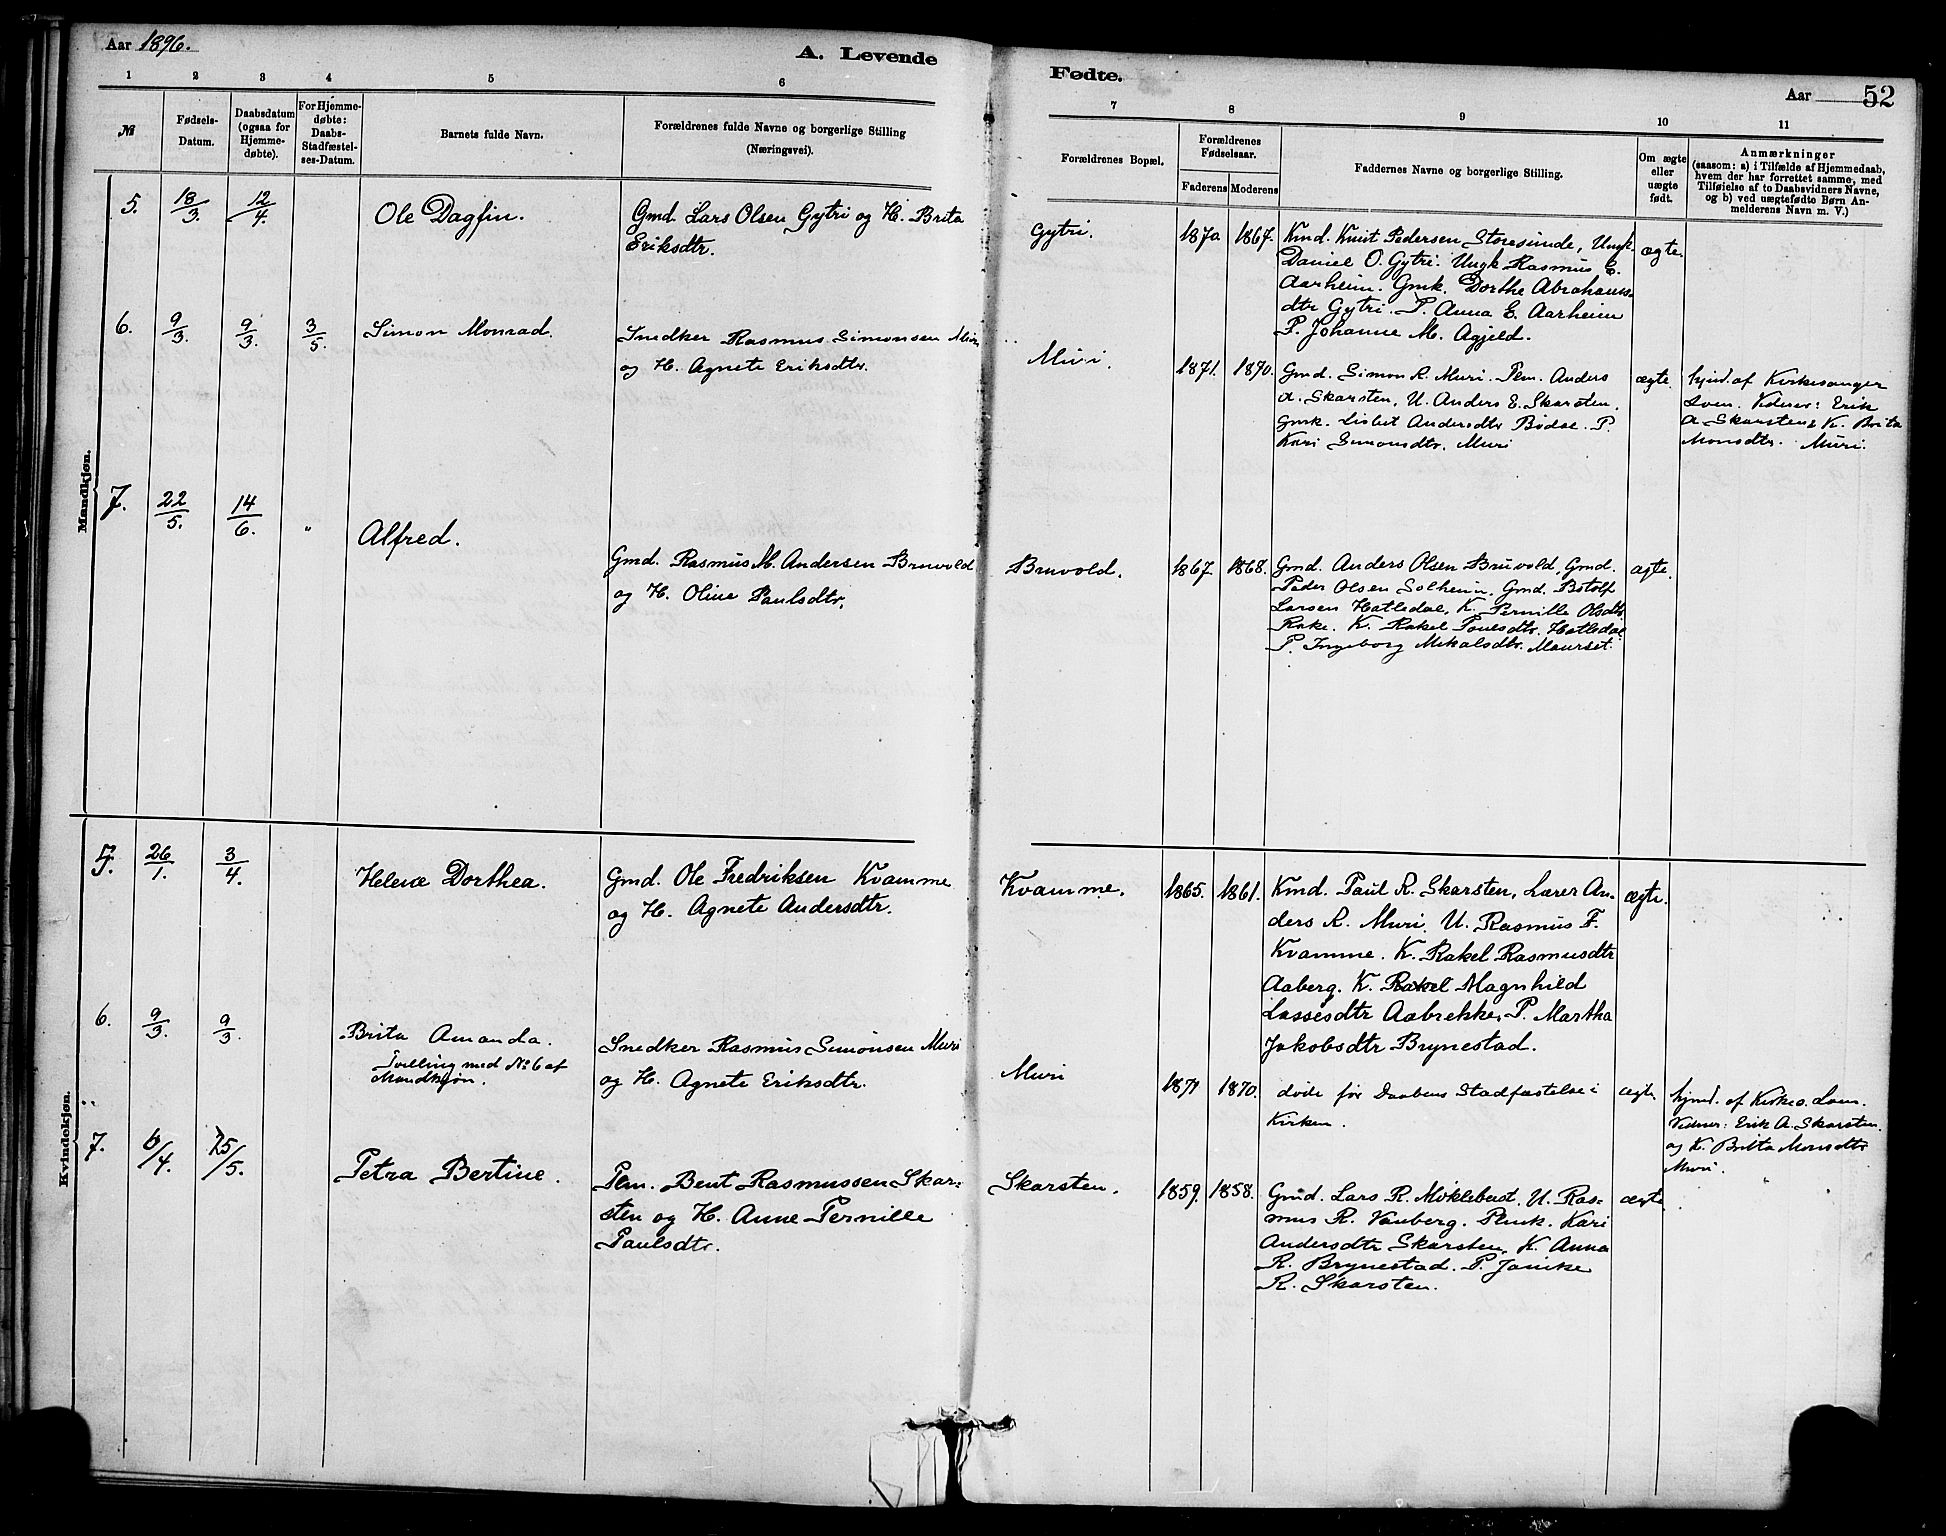 Aar 1896.
A. Levende
Fødte.
Aar 52
1 2 3 4 5 6 7 8 9 10 11
№
Fødsels-
Datum.
Daabsdatum
(ogsaa for
Hjemme-
døbte).
For Hjemme-
døbte:
Daabs-
Stadfæstel-
ses-Datum.
Barnets fulde Navn.
Forældrenes fulde Navne og borgerlige Stilling
(Næringsvei).
Forældrenes Bopæl.
Forældrenes
Fødselsaar.
Faderens Moderens
Faddernes Navne og borgerlige Stilling.
Om ægte
eller
uægte
født.
Anmærkninger
(saasom: a) i Tilfælde af Hjemmedaab,
hvem der har forrettet samme, med
Tilføielse af to Daabsvidners Navne,
og b) ved uægtefødte Børn An-
melderens Navn m. V.)
Mandkjøn.
5. 18/3. 12/4. Ole Dagfin.
Gmd. Lars Olsen Gytri og H. Brita
Eriksdtr.
Gytri. 1870 1867.
Kmd. Knut Pedersen Storesunde, Ungk.
Daniel O. Gytri. Ungk Rasmus E.
Aarheim. Gmk. Dorthe Abrahams-
dtr Gytri. P. Anna E. Aarheim
P. Johanne M. Agjeld.
ægte.
6. 9/3. 9/3. 3/5. Simon Monrad.
Snedker Rasmus Simonsen Muri
og H. Agnete Eriksdtr.
Muri. 1871. 1870.
Gmd. Simon R. Muri. Plm. Anders
A. Skarsten, U. Anders E. Skarsten,
Gmk. Lisbet Andersdtr Bødal. P.
Kari Simonsdtr. Muri
ægte.
hjmd. af Kirkesanger
Loen. Vidner: Erik
A. Skarsten & K. Brita
Monsdtr. Muri.
7. 22/5. 14/6. " Alfred.
Gmd. Rasmus M. Andersen Bruvold
og H. Oline Paulsdtr.
Bruvold. 1867. 1868.
Gmd. Anders Olsen Bruvold, Gmd.
Peder Olsen Solheim, Gmd. Botolf
Larsen Hatledal, K. Pernille Olsdtr
Rake. K. Rakel Paulsdtr. Hatledal
P. Ingeborg Mikalsdtr. Maurset.
ægte.
Kvindekjøn.
5. 26/1. 3/4. Helene Dorthea.
Gmd. Ole Fredriksen Kvamme
og H. Agnete Andersdtr.
Kvamme. 1865. 1861.
Kmd. Paul R. Skarsten, Lærer An-
ders R. Muri. U. Rasmus F.
Kvamme. K. Rakel Rasmusdtr
Aaberg. K. Rakel Magnhild
Lassesdtr Aabrekke, P. Martha
Jakobsdtr Brynestad.
ægte.
6. 9/3. 9/3. Brita Amanda.
Tvilling med No 6 af
Mandkjøn.
Snedker Rasmus Simonsen Muri
og H. Agnete Eriksdtr.
Muri 1871 1870.
døde før Daabens Stadfæstelse i
Kirken.
ægte
hjmd. af Kirkes. Loen.
Vidner: Erik A. Skarsten
og K. Britta Monsdtr
Muri.
7. 6/4. 25/5. Petra Bertine.
Plm. Bent Rasmussen Skar-
sten og H. Anne Pernille
Paulsdtr.
Skarsten. 1859. 1858.
Gmd. Lars R. Møklebust. U. Ras-
mus R. Vanberg. Plmk. Kari
Andersdtr Skarsten, K. Anna
R. Brynestad. P. Janike
R. Skarsten.
ægte